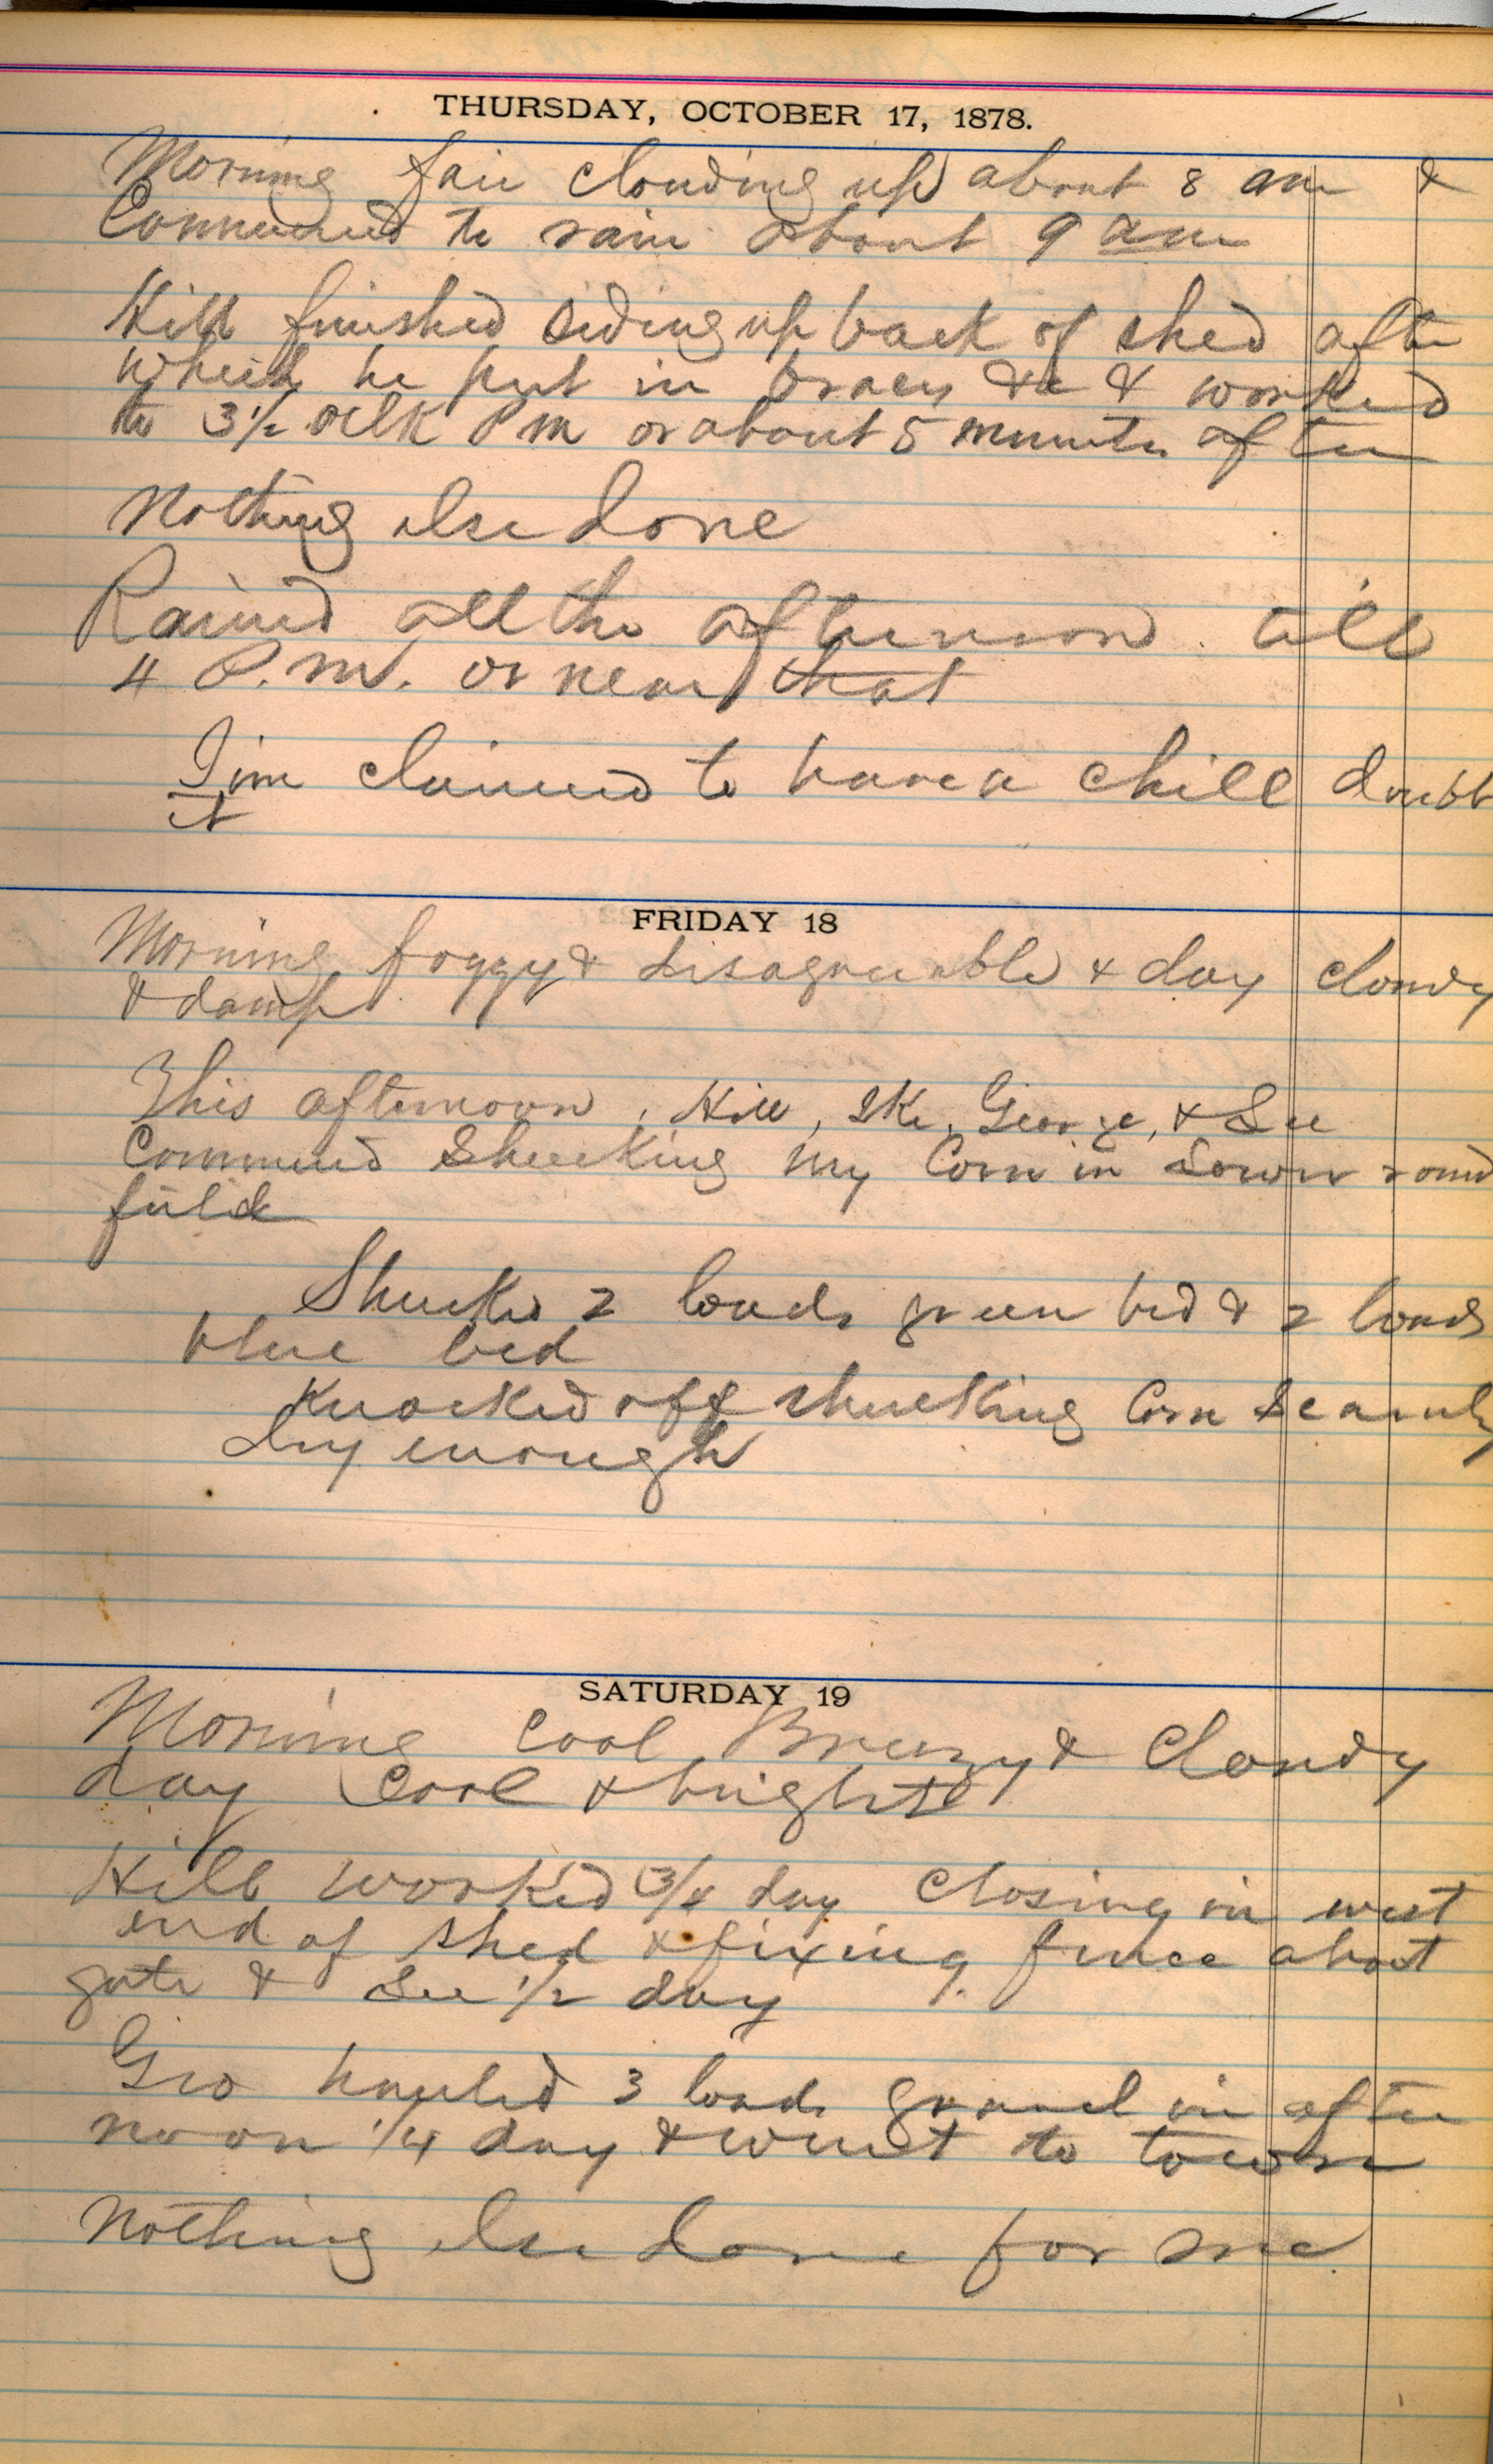 THURSDAY, OCTOBER 17, 1878.
Morning fair clouding up about 8 am &
Commenced to rain about 9 am
Hill finished siding up back of shed after
which he put in braces &c & worked
to 3 1/2 oclk Pm or about 5 minutes after
Nothing else done
Rained all the afternoon till
4 P.M. or near that
Jim claimed to have a chill doubt
it
FRIDAY 18
Morning foggy & disagreeable & day cloudy
& damp
This afternoon, Hill, Ike, George, & Lee
Commencd Shucking my Corn in Lower round
field
Shucked 2 loads green bed & 2 loads
blue bed
Knocked off shucking Corn Scarcely
dry enough
SATURDAY 19
Morning Cool Breezy & Cloudy
day Cool & bright
Hill worked 3/4 day Closing in west
end of shed & fixing fence about
gate & Lee 1/2 day
Geo hauled 3 loads gravel in after
noon 1/4 day & went to town
Nothing else done for me